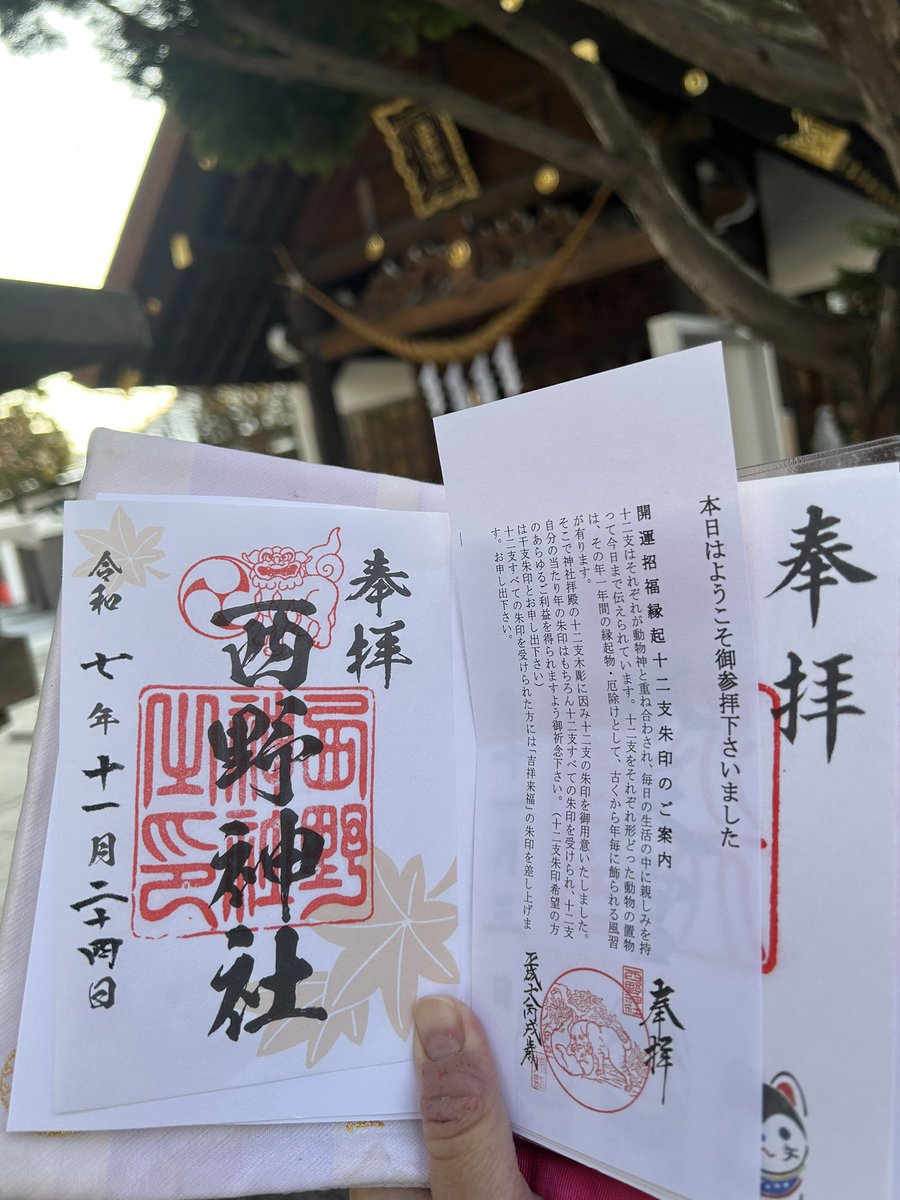 奉拝
西野神社
西野
神社
之印
令和七年十一月二十四日
本日はようこそ御参拝下さいました
開運招福縁起十二支朱印のご案内
十二支はそれぞれが動物神と重ね合わされ、毎日の生活の中に親しみを持
って今日まで伝えられています。十二支をそれぞれ形どった動物の置物
は、その年一年間の縁起物・厄除けとして、古くから年毎に飾られる風習
が有ります。
そこで神社拝殿の十二支木彫に因み十二支の朱印を御用意いたしました。
自分の当たり年の朱印はもちろん十二支すべての朱印を受けられ、十二支
のあらゆるご利益を得られますよう御祈念下さい。(十二支朱印希望の方
は干支朱印とお申し出下さい)
十二支すべての朱印を受けられた方には「吉祥来福」の朱印を差し上げま
す。お申し出下さい。
奉拝
西野神社
平成十八丙戌歳
奉拝